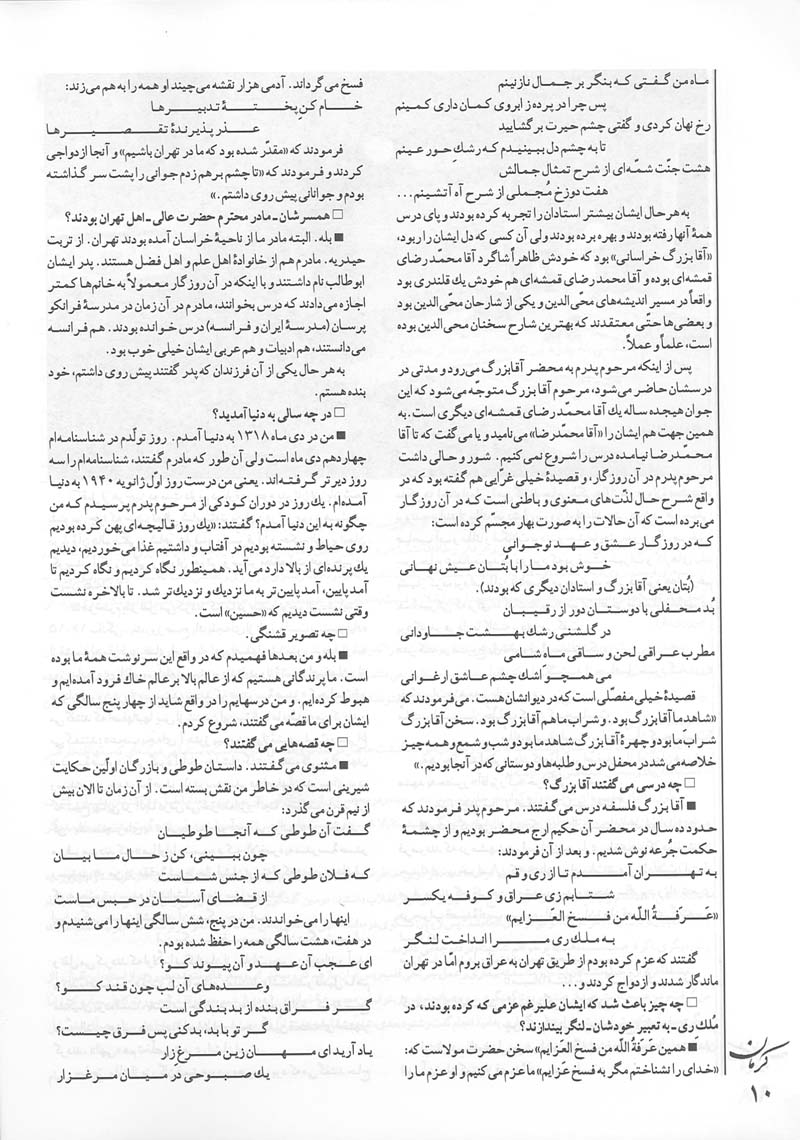 ماه من گفتی که بنگر بر جمال نازنینم
پس چرا در پرده ز ابروی کمان داری کمینم
رخ نهان کردی و گفتی چشم حیرت بر گشایید
تا به چشم دل ببینیدم که رشك حور عینم
هشت جنّت شمّه‌ای از شرح تمثال جمالش
هفت دوزخ مُجملی از شرح آه آتشینم...
به هر حال ایشان بیشتر استادان را تجربه کرده بودند و پای درس
همهٔ آنها رفته بودند و بهره برده بودند ولی آن کسی که دل ایشان را ربود،
«آقا بزرگ خراسانی» بود که خودش ظاهراً شاگرد آقا محمّد رضای
قمشه‌ای بوده و آقا محمد رضای قمشه‌ای هم خودش یك قلندری بود
واقعاً در مسیر اندیشه‌های محّی الدین و یکی از شارحان محّی الدین بود
و بعضی‌ها حتّی معتقدند که بهترین شارح سخنان محی الدین بوده
است، علماً و عملاً.
پس از اینکه مرحوم پدرم به محضر آقابزرگ می‌رود و مدتی در
درسشان حاضر می‌شود، مرحوم آقا بزرگ متوجّه می‌شود که این
جوان هیجده ساله یك آقا محمّد رضای قمشه‌ای دیگری است. به
همین جهت هم ایشان را «آقا محمّدرضا» می‌نامید و یا می گفت که تا آقا
محمّدرضا نیامده درس را شروع نمی‌کنیم. شور و حالی داشت
مرحوم پدرم در آن روزگار، و قصیدهٔ خیلی غرّایی هم گفته بود که در
واقع شرح حال لذّت‌های معنوی و باطنی است که در آن روزگار
می‌برده است که آن حالات را به صورت بهار مجسّم کرده است:
که در روزگار عشق و عهد نوجوانی
خوش بود ما را با بُتان عیش نهانی
(بُتان یعنی آقا بزرگ و استادان دیگری که بودند).
بُد محفلی با دوستان دور از رقیبان
در گلشنی رشك بهشت جاودانی
مطرب عراقی لحن و ساقی ماه شامی
می همچو اشك چشم عاشق ارغوانی
قصیدهٔ خیلی مفصّلی است که در دیوانشان هست. می‌فرمودند که
«شاهد ما آقا بزرگ بود. و شراب ما هم آقا بزرگ بود. سخن آقا بزرگ
شراب ما بود و چهرهٔ آقا بزرگ شاهد ما بود و شب و شمع و همه چیز
خلاصه می‌شد در محفل درس و طلبه‌ها و دوستانی که در آنجا بودیم.»
□ چه درسی می گفتند آقا بزرگ؟
■ آقا بزرگ فلسفه درس می گفتند. مرحوم پدر فرمودند که
حدود ده سال در محضر آن حکیم ارج محضر بودیم و از چشمهٔ
حکمت جُرعه نوش شدیم. و بعد از آن فرمودند:
به تهران آمدم تا زری و قم
شتابم زی عراق و کوفه یکسر
«عَرَفةُ اللّه من فسخ العَزایم»
به ملك ری مرا انداخت لنگر
گفتند که عزم کرده بودم از طریق تهران به عراق بروم امّا در تهران
ماندگار شدند و ازدواج کردند و...
□ چه چیز باعث شد که ایشان علیرغم عزمی که کرده بودند، در
مُلكِ ری ـ به تعبیر خودشان ـ لنگر بیندازند؟
■ همین عَرَفةُ اللّه من فسخ العزایم» سخن حضرت مولاست که:
«خدای را نشناختم مگر به فسخ عَزایم» ما عزم می کنیم و او عزم ما را
فسخ می‌گرداند. آدمی هزار نقشه می‌چیند او همه را به هم می‌زند:
خام کنِ پختهٔ تدبیرها
عذر پذیرندهٔ تقصیرها
فرمودند که «مقدّر شده بود که ما در تهران باشیم» و آنجا ازدواجی
کردند و فرمودند که «تا چشم بر هم زدم جوانی را پشت سر گذاشته
بودم و جوانانی پیش روی داشتم.»
□ همسرشان ـ مادر محترم حضرت عالی ـ اهل تهران بودند؟
■ بله. البته مادر ما از ناحیهٔ خراسان آمده بودند تهران. از تربت
حیدریه. مادرم هم از خانوادهٔ اهل علم و اهل فضل هستند. پدر ایشان
ابوطالب نام داشتند و با اینکه در آن روزگار معمولاً به خانم‌ها کمتر
اجازه می‌دادند که درس بخوانند، مادرم در آن زمان در مدرسهٔ فرانکو
پرسان (مدرسهٔ ایران و فرانسه) درس خوانده بودند. هم فرانسه
می‌دانستند، هم ادبیات و هم عربی ایشان خیلی خوب بود.
به هر حال یکی از آن فرزندان که پدر گفتند پیش روی داشتم، خود
بنده هستم.
□ در چه سالی به دنیا آمدید؟
■ من در دی ماه ۱۳۱۸ به دنیا آمدم. روز تولّدم در شناسنامه‌ام
چهاردهم دی ماه است ولی آن طور که مادرم گفتند، شناسنامه‌ام را سه
روز دیرتر گرفته‌اند. یعنی من درست روز اوّل ژانویه ۱۹۴۰ به دنیا
آمده‌ام. یك روز در دوران کودکی از مرحوم پدرم پرسیدم که من
چگونه به این دنیا آمدم؟ گفتند: «یك روز قالیچه‌ای پهن کرده بودیم
روی حیاط و نشسته بودیم در آفتاب و داشتیم غذا می‌خوردیم، دیدیم
یك پرنده‌ای از بالا دارد می‌آید. همینطور نگاه کردیم و نگاه کردیم تا
آمد پایین، آمد پایین‌تر به ما نزدیك و نزدیك‌تر شد. تا بالاخره نشست
وقتی نشست دیدیم که «حسین» است.
□ چه تصویر قشنگی.
■ بله و من بعدها فهمیدم که در واقع این سرنوشت همهٔ ما بوده
است. ما پرندگانی هستیم که از عالم بالا بر عالم خاك فرود آمده‌ایم و
هبوط کرده‌ایم. و من درسهایم را در واقع شاید از چهار پنج سالگی که
ایشان برای ما قصّه می گفتند، شروع کردم.
□ چه قصه‌هایی می گفتند؟
■ مثنوی می گفتند. داستان طوطی و بازرگان اولّین حکایت
شیرینی است که در خاطر من نقش بسته است. از آن زمان تا الان بیش
از نیم قرن می گذرد:
گفت آن طوطی که آنجا طوطیان
چون ببینی، کن ز حال ما بیان
که فلان طوطی که از جنس شماست
از قضای آسمان در حبس ماست
اینها را می‌خواندند. من در پنج، شش سالگی اینها را می‌شنیدم و
در هفت، هشت سالگی همه را حفظ شده بودم.
ای عجب آن عهد و آن پیوند کو؟
وعده‌های آن لب چون قند کو؟
گر فراق بنده از بد بندگی است
گر تو با بد، بد کنی پس فرق چیست؟
یاد آرید ای مهان زین مرغِ زار
یك صبوحی در میان مرغزار
کرمان
۱۰